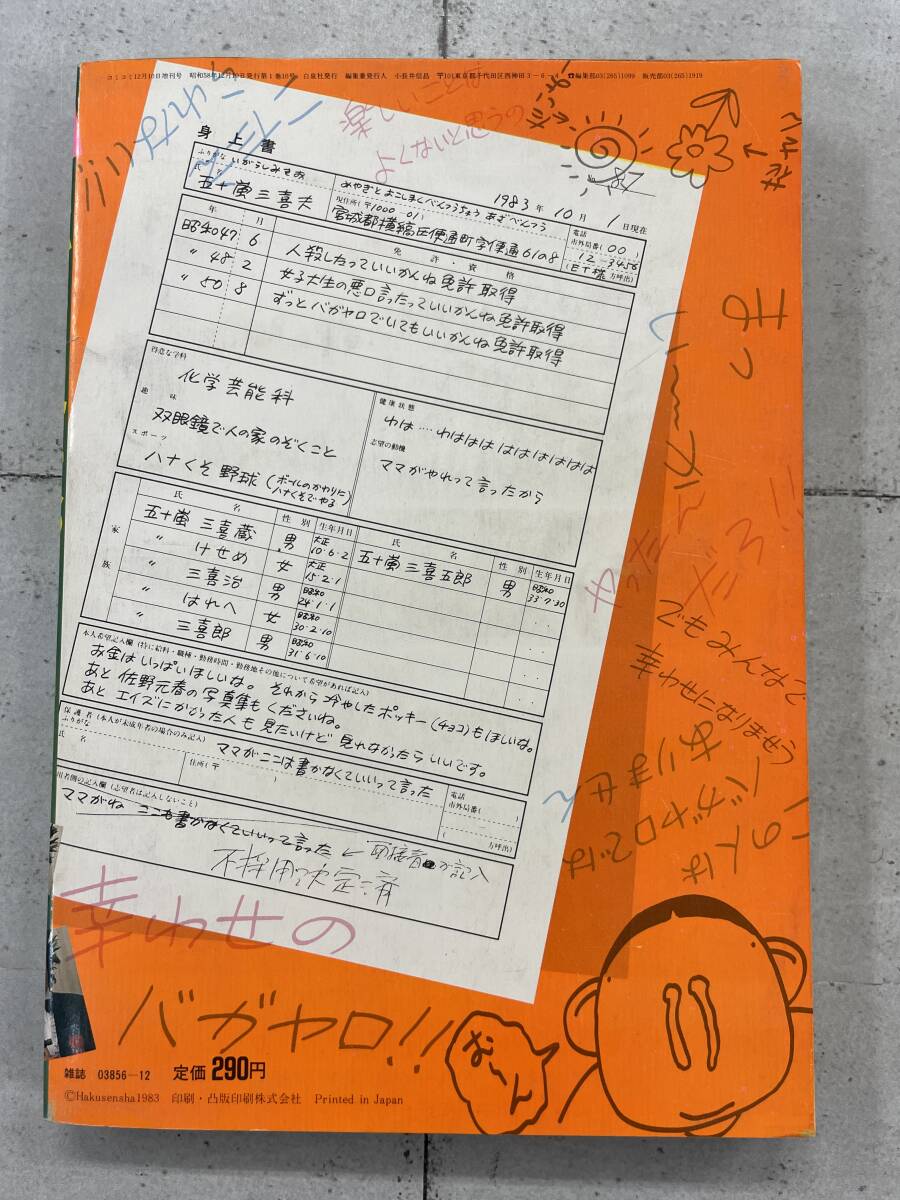 コミコミ12月10日増刊号 昭和58年12月10日発行第1巻10号 白泉社発行 編集兼発行人 小長井信昌 〒101東京都千代田区西神田3-6 ☎編集部03(265)1099 販売部03(265)1919
楽しいことは
よくないと思うの
身上書
1983年10月1日現在
ふりがな いがらしみきお
氏名
五十嵐三喜夫
みやぎとよこしまくべんつうちょう あざべんつう
現住所(〒1000 01)
宮城都横縞区便通町字便通61の8
電話
市外局番(00)
12 3456
(ET様 方呼出)
年 月 免許・資格
昭和47 6 人殺したっていいかんね免許取得
〃 48 2 女子大生の悪口言ったっていいかんね免許取得
〃 50 8 ずっとバガヤロでいてもいいかんね免許取得
得意な学科
化学芸能科
趣味
双眼鏡で人の家のぞくこと
スポーツ
ハナくそ野球(ボールのかわりにハナくそでやる)
健康状態
わは‥‥わははは はははははは
志望の動機
ママがやれって言ったから
家族
氏名 性別 生年月日
五十嵐 三喜蔵 男 大正10・6・2
〃 けせめ 女 大正15・2・1
〃 三喜治 男 昭和24・1・1
〃 はれへ 女 昭和30・2・10
〃 三喜郎 男 昭和31・6・10
氏名 性別 生年月日
五十嵐 三喜五郎 男 昭和33・9・30
本人希望記入欄(特に給料・職種・勤務時間・勤務地その他について希望があれば記入)
お金はいっぱいほしいな。それから冷やしたポッキー(チョコ)もほしいな。
あと 佐野元春の写真集もくださいね。
あと エイズにかかった人も見たいけど 見れなかったらいいです。
保護者(本人が未成年者の場合のみ記入)
ふりがな
氏名
ママがここは書かなくていいって言った
住所(〒
電話
市外局番( )
( 方呼出)
用者側の記入欄(志望者は記入しないこと)
ママがね ここも書かなくていいって言った ← 面接者が記入
不採用決定済
まっ
やったん
でもみんなで
幸わせになりませう
この人は
バガヤロでは
ありません
幸わせの
バガヤロ!!
な〜ん
雑誌 03856-12 定価290円
©Hakusensha1983 印刷・凸版印刷株式会社 Printed in Japan